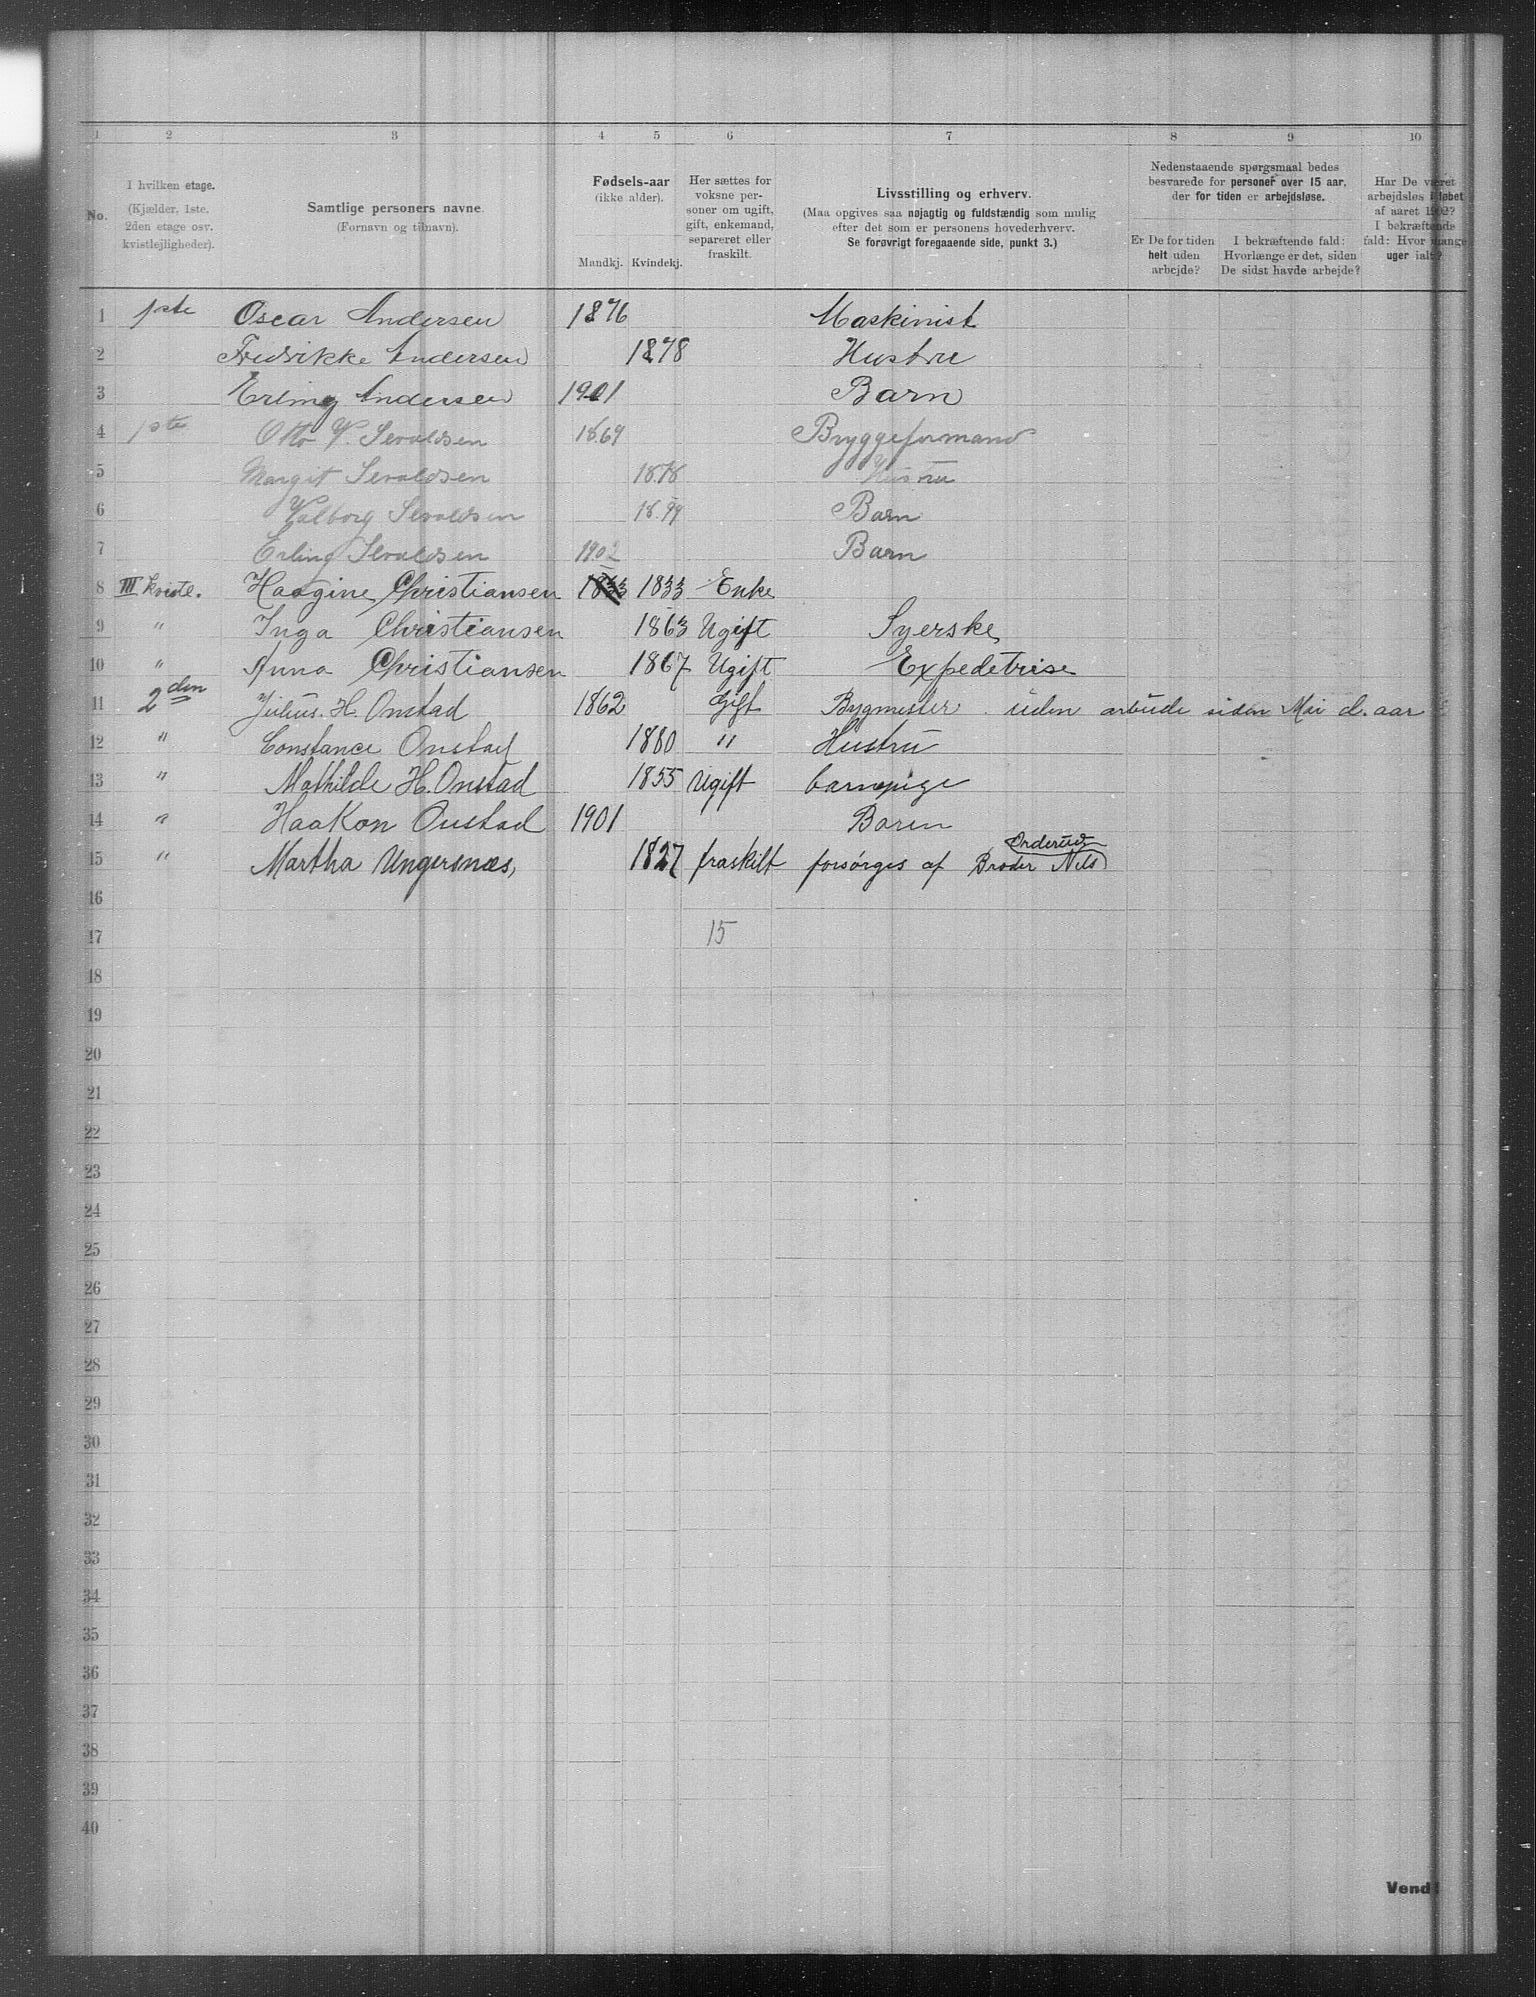 1 2 3 4 5 6 7 8 9 10
No.
I hvilken etage.
(Kjælder, 1ste.
2den etage osv.
kvistlejligheder).
Samtlige personers navne.
(Fornavn og tilnavn).
Fødsels-aar
(ikke alder).
Mandkj. Kvindekj.
Her sættes for
voksne per-
soner om ugift,
gift, enkemand,
separeret eller
fraskilt.
Livsstilling og erhverv.
(Maa opgives saa nøjagtig og fuldstændig som mulig
efter det som er personens hovederhverv.
Se forøvrigt foregaaende side, punkt 3.)
Nedenstaaende spørgsmaal bedes
besvarede for personer over 15 aar,
der for tiden er arbejdsløse.
Er De for tiden
helt uden
arbejde?
I bekræftende fald:
Hvorlænge er det, siden
De sidst havde arbejde?
Har De været
arbejdsløs i løbet
af aaret 1902?
I bekræftende
fald: Hvor mange
uger ialt?
1 1ste Oscar Andersen 1876 Maskinist
2 Fredrikke Andersen 1878 Hustru
3 Erling Andersen 1901 Barn
4 1ste Otto V. Sevaldsen 1869 Bryggeformand
5 Margit Sevaldsen 1878 Hustru
6 Valborg Sevaldsen 1899 Barn
7 Erling Sevaldsen 1902 Barn
8 III kvistl. Haagine Christiansen 1833 1833 Enke
9 " Inga Christiansen 1863 Ugift Syerske
10 " Anna Christiansen 1867 Ugift Expedetrise
11 2den Julius. H. Onstad 1862 Gift Bygmester uden arbude siden Mai d. aar
12 " Constance Onstad 1880 " Hustru
13 " Mathilde H. Onstad 1855 Ugift barnepige
14 " HaaKon Onstad 1901 Baren
15 " Martha Ungersnæs, 1827 fraskilt forsørges af Broder Nils
Onderud
16
17 15
18
19
20
21
22
23
24
25
26
27
28
29
30
31
32
33
34
35
36
37
38
39
40
Vend!